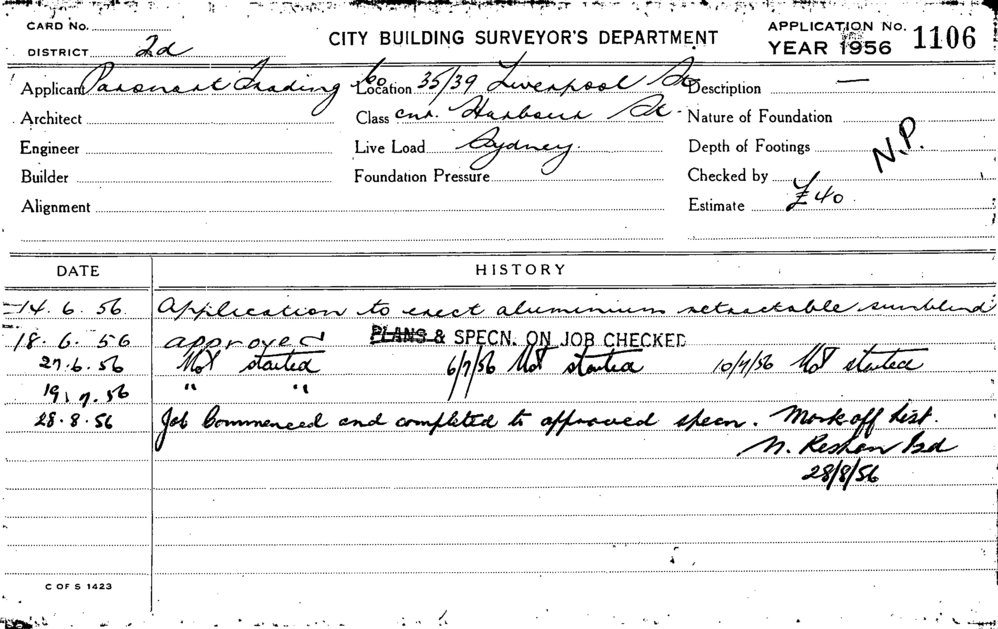 CARD No.
DISTRICT 2d
CITY BUILDING SURVEYOR'S DEPARTMENT
APPLICATION No. 1106
YEAR 1956
Applicant Trading Co
Location 35/39 Liverpool St
Description —
Architect
Class cnr. Harbour St.
Nature of Foundation
Engineer
Live Load Sydney.
Depth of Footings
N.P.
Builder
Foundation Pressure
Checked by
Alignment
Estimate £40
DATE
HISTORY
14.6.56 Application to erect aluminium retractable sunblind
18.6.56 approved PLANS & SPECN. ON JOB CHECKED
27.6.56 Not started 6/7/56 Not started 10/7/56 Not started
19.7.56 " "
28.8.56 Job Commenced and completed to approved specn. Mark off list.
28/8/56
C OF S 1423